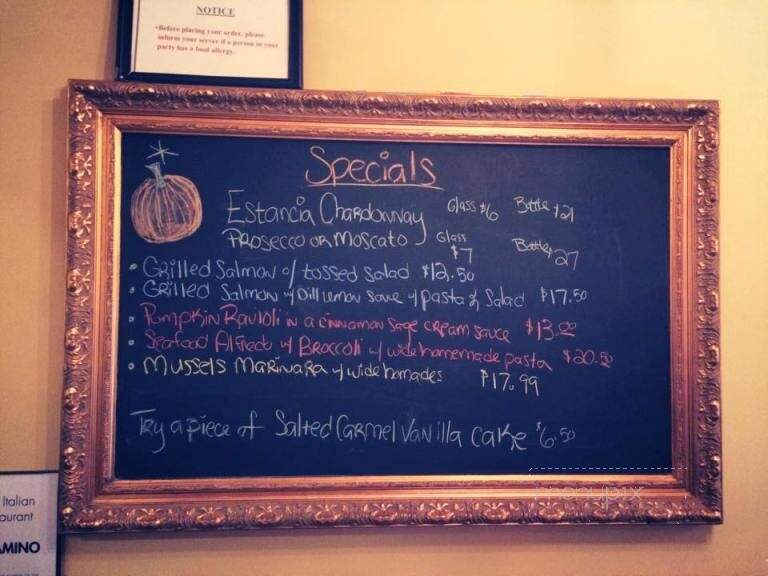 NOTICE
•Before placing your order, please
inform your server if a person in your
party has a food allergy.
Specials
Estancia Chardonnay Glass $6 Bottle $21
Prosecco or Moscato Glass $7 Bottle 27
• Grilled Salmon o/ tossed salad $12.50
• Grilled Salmon w/ Dill lemon sauce w/ pasta & Salad $17.50
• Pumpkin Ravioli in a cinnamon sage cream sauce $13.00
• Seafood Alfredo w/ Broccoli w/ wide homemade pasta $20.50
• Mussels Marinara w/ wide homades $17.99
Try a piece of Salted Carmel Vanilla cake $6.50
Italian
aurant
AMINO
menupix